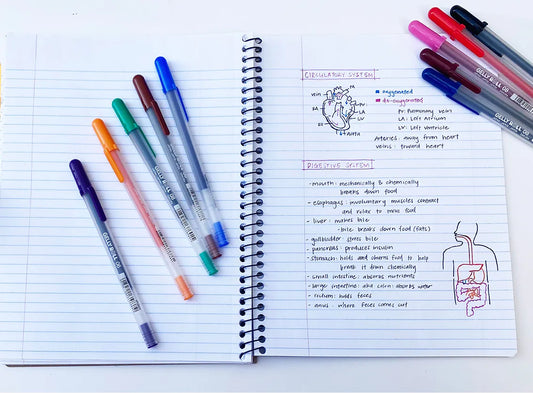 CIRCULATORY SYSTEM
PA
vein
PV
RA
LA
LV
RV
aorta
oxygenated
de-oxygenated
PV: Pulmonary vein
LA: Left Atrium
LV: Left ventricle
Arteries: away from heart
veins: toward heart
DIGESTIVE SYSTEM
- mouth: mechanically & chemically
breaks down food
- esophagus: involuntary muscles contract
and relax to move food
- liver: makes bile
- bile breaks down food (fats)
- gallbladder: stores bile
- pancreas: produces insulin
- stomach: holds and churns food to help
break it down chemically
- small intestine: absorbs nutrients
- large intestine: aka colon: absorbs water
- rectum: holds feces
- anus: where feces comes out
GELLY ROLL 06
GELLY ROLL 06
GELLY ROLL 06